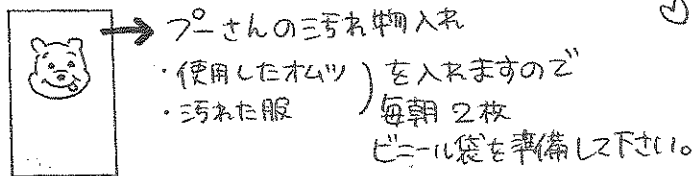 プーさんの汚れ物入れ
・使用したオムツ
・汚れた服
を入れますので
毎朝2枚
ビニール袋を準備して下さい。